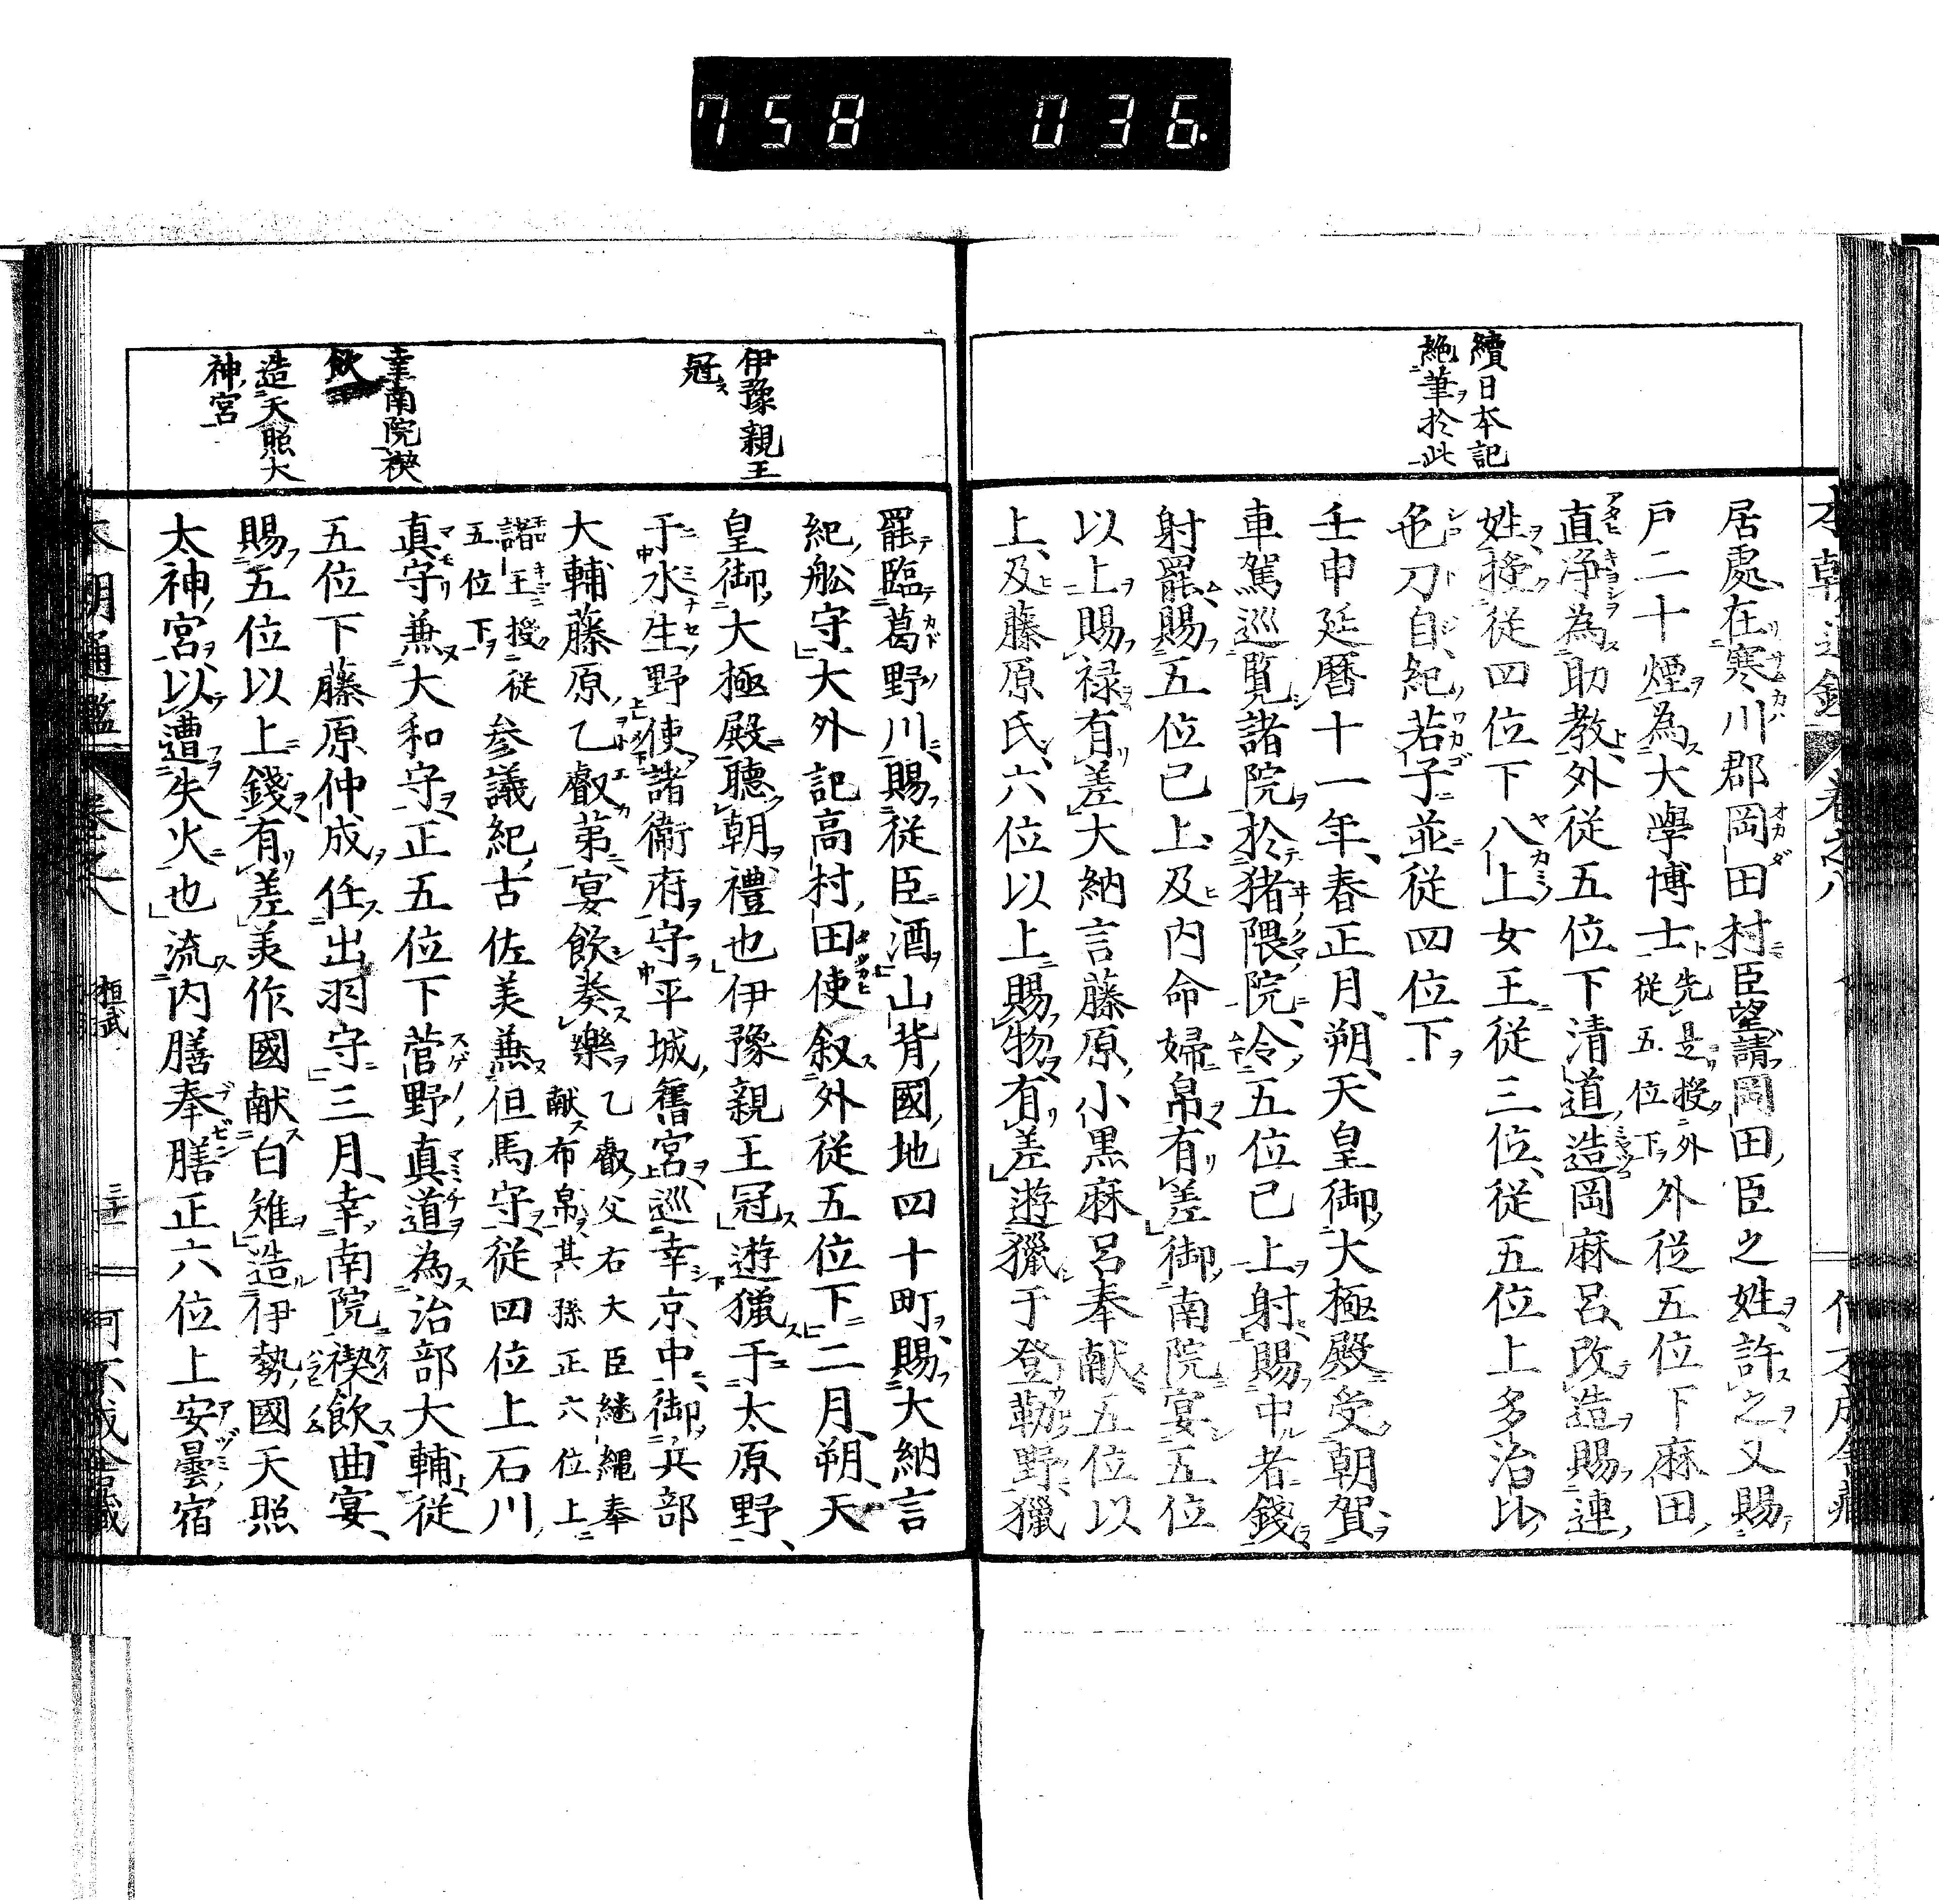 758 036.
續日本記
絶筆於此
居處在寒川郡岡田村臣望請岡田臣之姓許之又賜
戸二十煙為大學博士先是授外從五位下外從五位下麻田
直淨為助教外從五位下清道造岡麻呂改造賜連
姓授從四位下八上女王從三位從五位上多治比
刀自紀若子並從四位下
壬申延暦十一年春正月朔天皇御大極殿受朝賀
車駕巡覧諸院於猪隈院令五位已上射賜中者錢
射罷賜五位已上及内命婦帛有差御南院宴五位
以上賜禄有差大納言藤原小黒麻呂奉献五位以
上及藤原氏六位以上賜物有差遊獵于登勒野獵
伊豫親王
冠
幸南院禊
飲
造天照大
神宮
罷臨葛野川賜從臣酒山背國地四十町賜大納言
紀舩守大外記高村田使叙外從五位下二月朔天
皇御大極殿聽朝禮也伊豫親王冠遊獵于太原野
于水生野使諸衞府守平城舊宮巡幸京中御兵部
大輔藤原乙叡第宴飲奏樂乙叡父右大臣継縄奉献布帛其孫正六位上
諸王授從五位下参議紀古佐美兼但馬守從四位上石川
真守兼大和守正五位下菅野真道為治部大輔從
五位下藤原仲成任出羽守三月幸南院禊飲曲宴
賜五位以上錢有差美作國献白雉造伊勢國天照
太神宮以遭失火也流内膳奉膳正六位上安曇宿
本朝通鑑 卷之八 桓武 三十一